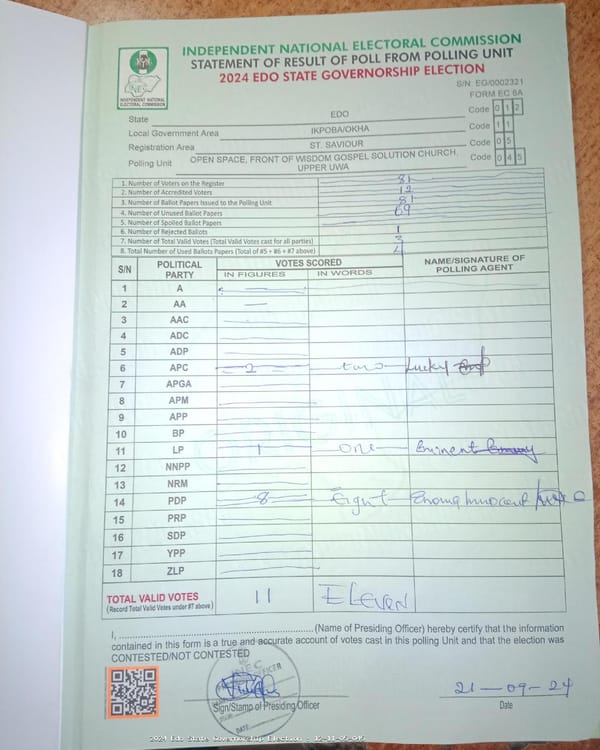 INDEPENDENT NATIONAL ELECTORAL COMMISSION
STATEMENT OF RESULT OF POLL FROM POLLING UNIT
2024 EDO STATE GOVERNORSHIP ELECTION
S/N: EG/0002321
FORM EC 8A
INDEPENDENT NATIONAL ELECTORAL COMMISSION
State EDO Code 0 1 2
Local Government Area IKPOBA/OKHA Code 1 1
Registration Area ST. SAVIOUR Code 0 5
Polling Unit OPEN SPACE, FRONT OF WISDOM GOSPEL SOLUTION CHURCH, UPPER UWA Code 0 4 5
1. Number of Voters on the Register 81
2. Number of Accredited Voters 12
3. Number of Ballot Papers Issued to the Polling Unit 81
4. Number of Unused Ballot Papers 69
5. Number of Spoiled Ballot Papers
6. Number of Rejected Ballots 1
7. Number of Total Valid Votes (Total Valid Votes cast for all parties) 3
8. Total Number of Used Ballots Papers (Total of #5 + #6 + #7 above) 4
S/N POLITICAL PARTY VOTES SCORED NAME/SIGNATURE OF POLLING AGENT
IN FIGURES IN WORDS
1 A
2 AA
3 AAC
4 ADC
5 ADP
6 APC 2 two Lucky
7 APGA
8 APM
9 APP
10 BP
11 LP 1 one Eminent
12 NNPP
13 NRM
14 PDP 8 Eight Innocent
15 PRP
16 SDP
17 YPP
18 ZLP
TOTAL VALID VOTES 11 ELEVEN
(Record Total Valid Votes under #7 above)
I, ............ (Name of Presiding Officer) hereby certify that the information
contained in this form is a true and accurate account of votes cast in this polling Unit and that the election was
CONTESTED/NOT CONTESTED
INEC
Sign/Stamp of Presiding Officer
DATE
21-09-24
Date
2024 Edo State Governorship Election - 12-11-05-045